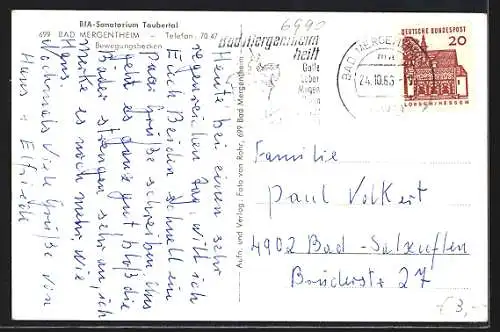 BfA-Sanatorium Taubertal
699 BAD MERGENTHEIM – Telefon: 70 47
Bewegungsbecken
Heute bei einen sehr
regenreichen Tag, will ich
Euch Beiden schnell ein
paar Grüße schreiben. Uns
geht es ganz gut bloß die
Bäder strengen sehr an, ich
merke es noch mehr wie
Hans.
Nochmals viele Grüße von
Hans + Elfriede
Aufn. und Verlag: Foto von Rohr, 699 Bad Mergentheim
6990
Bad Mergentheim
heilt
Galle
Leber
Magen
BAD MERGENTHEIM
24.10.65
DEUTSCHE BUNDESPOST
20
LORSCH/HESSEN
Familie
Paul Volkert
4902 Bad-Salzuflen
Brüderstr 27
€ 3,-